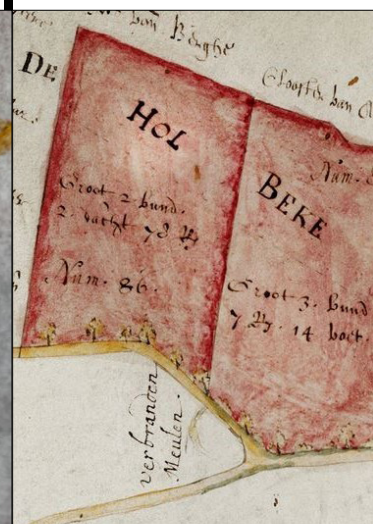 van Berghe
Clooster van
DE
HOL
BEKE
Groot 2 bund.
2 dacht 78 R
Num. 86.
Num.
Groot 3. Bund
7 R. 14 voet.
verbranden
Meulen.